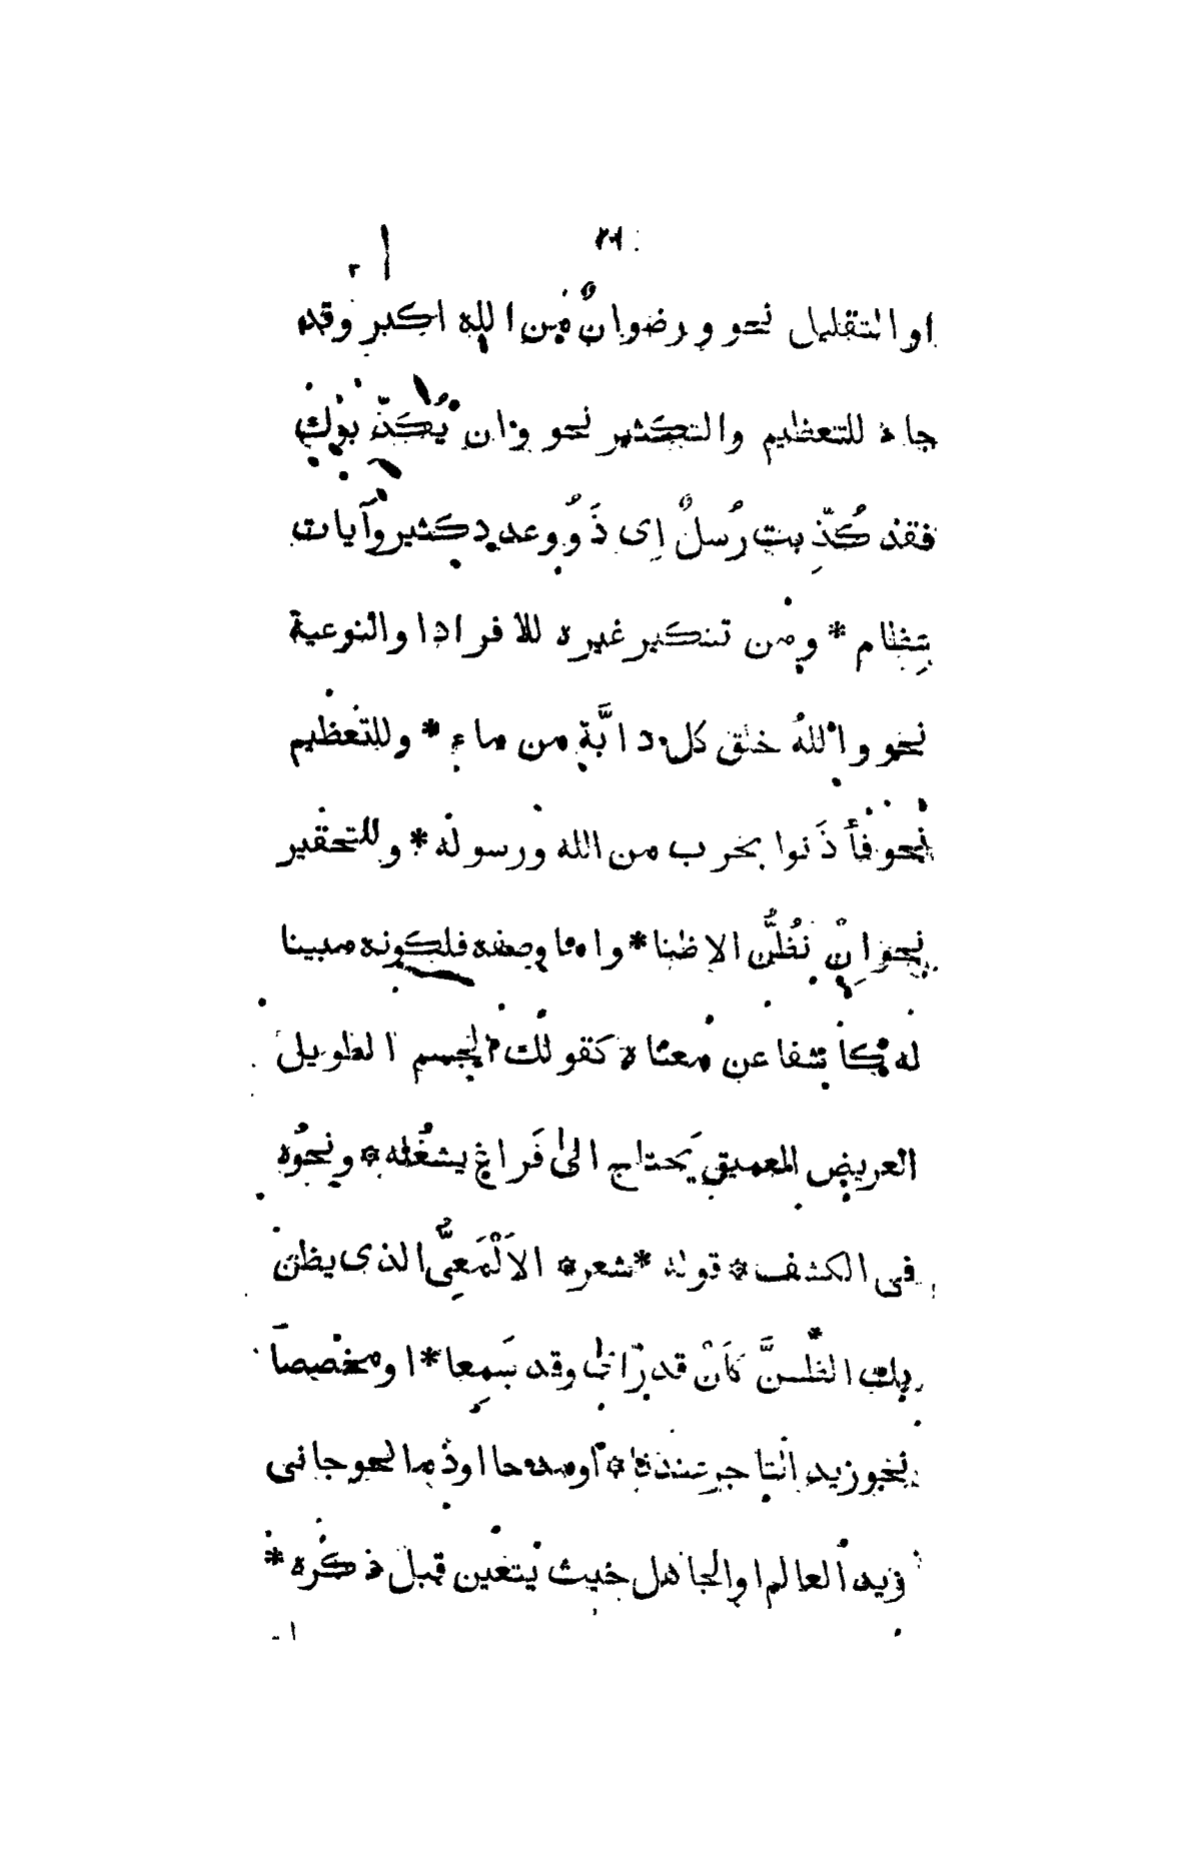 او التقليل نحو ورضوانٌ من الله اكبر وقد
جاء للتعظيم والتكثير نحو وان يُكَذّبوك
فقد كُذّبِت رُسلٌ اى ذَوُو عدد كثير وآيات
عِظام * ومن تنكير غيره للافراد او النوعية
نحو واللهُ خلق كل دابَّةٍ من ماء * وللتعظيم
نحو فأذَنوا بحرب من الله ورسوله * وللتحقير
نحو اِنْ نظُنُّ الا ظنا * واما وصفه فلكونه مبينا
له كاشفا عن معناه كقولك الجسم الطويل
العريض العميق يَحتاج الى فَراغ يشغُله * ونحوُه
فى الكشف * قوله * شعر * الاَلْمَعِىُّ الذى يظن
بك الظنَّ كَاَنْ قد رَاٰى وقد سَمِعا * او مخصصا
نحو زيد التاجر عندنا * او مدحا او ذما نحو جانى
زيد العالم او الجاهل حيث يتعين قبل ذكره *